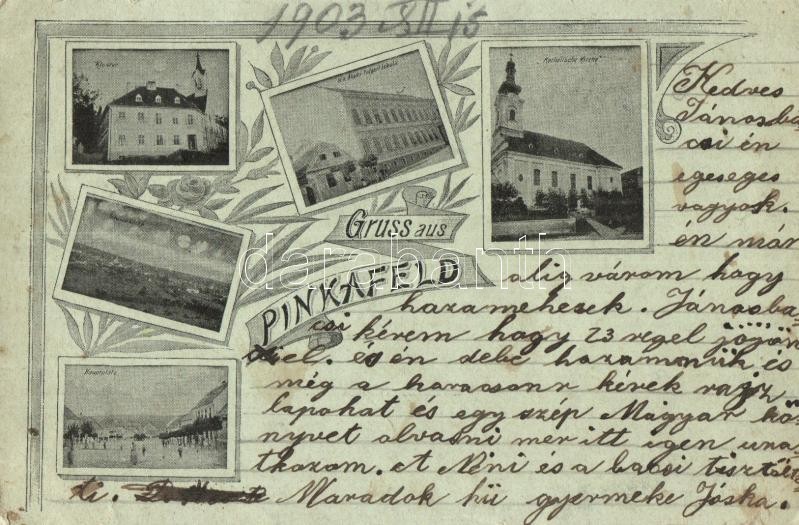 1903 XII 15
Kloster
K.k. Staats Bürgerschule
Katholische Kirche
Hauptplatz
Gruss aus
PINKAFELD
darabanth
Kedves
Jánosba
csi én
egeseges
vagyok.
én már
alig várom hogy
hazamehesek. Jánosba
csi kérem hogy 23 regel jöjön
el. és én de hazamenük és
még a karacsonr kérek rajz
lapokat és egy szép Magyar kö
nyvet olvasni mer itt igen una
tkozom. A Néni és a bacsi tisztölte
ti. Maradok hü gyermeke Jóska.